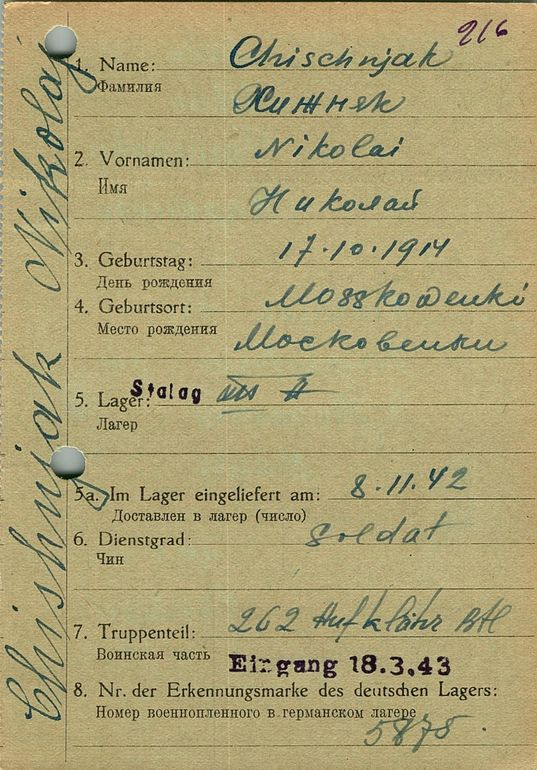 216
1. Name: Chischnjak
Фамилия Хижняк
2. Vornamen: Nikolai
Имя Николай
3. Geburtstag: 17.10.1914
День рождения
4. Geburtsort: Mosskowenki
Место рождения Московенки
5. Lager: Stalag
Лагер
5a. Im Lager eingeliefert am: 8.11.42
Доставлен в лагер (число)
6. Dienstgrad: Soldat
Чин
7. Truppenteil: 262 Aufklähr Btl
Воинская часть Eingang 18.3.43
8. Nr. der Erkennungsmarke des deutschen Lagers:
Номер военнопленного в германском лагере
5878.
Chishnjak Nikolaj